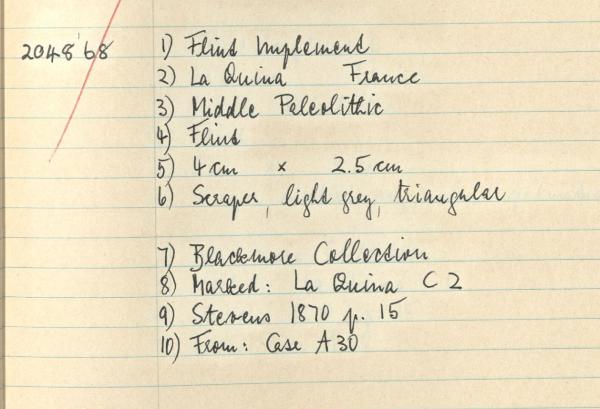 2048'68 1) Flint Implement
2) La Quina France
3) Middle Paleolithic
4) Flint
5) 4 cm x 2.5 cm
6) Scraper, light grey, triangular
7) Blackmore Collection
8) Marked: La Quina C 2
9) Stevens 1870 p. 15
10) From: Case A 30